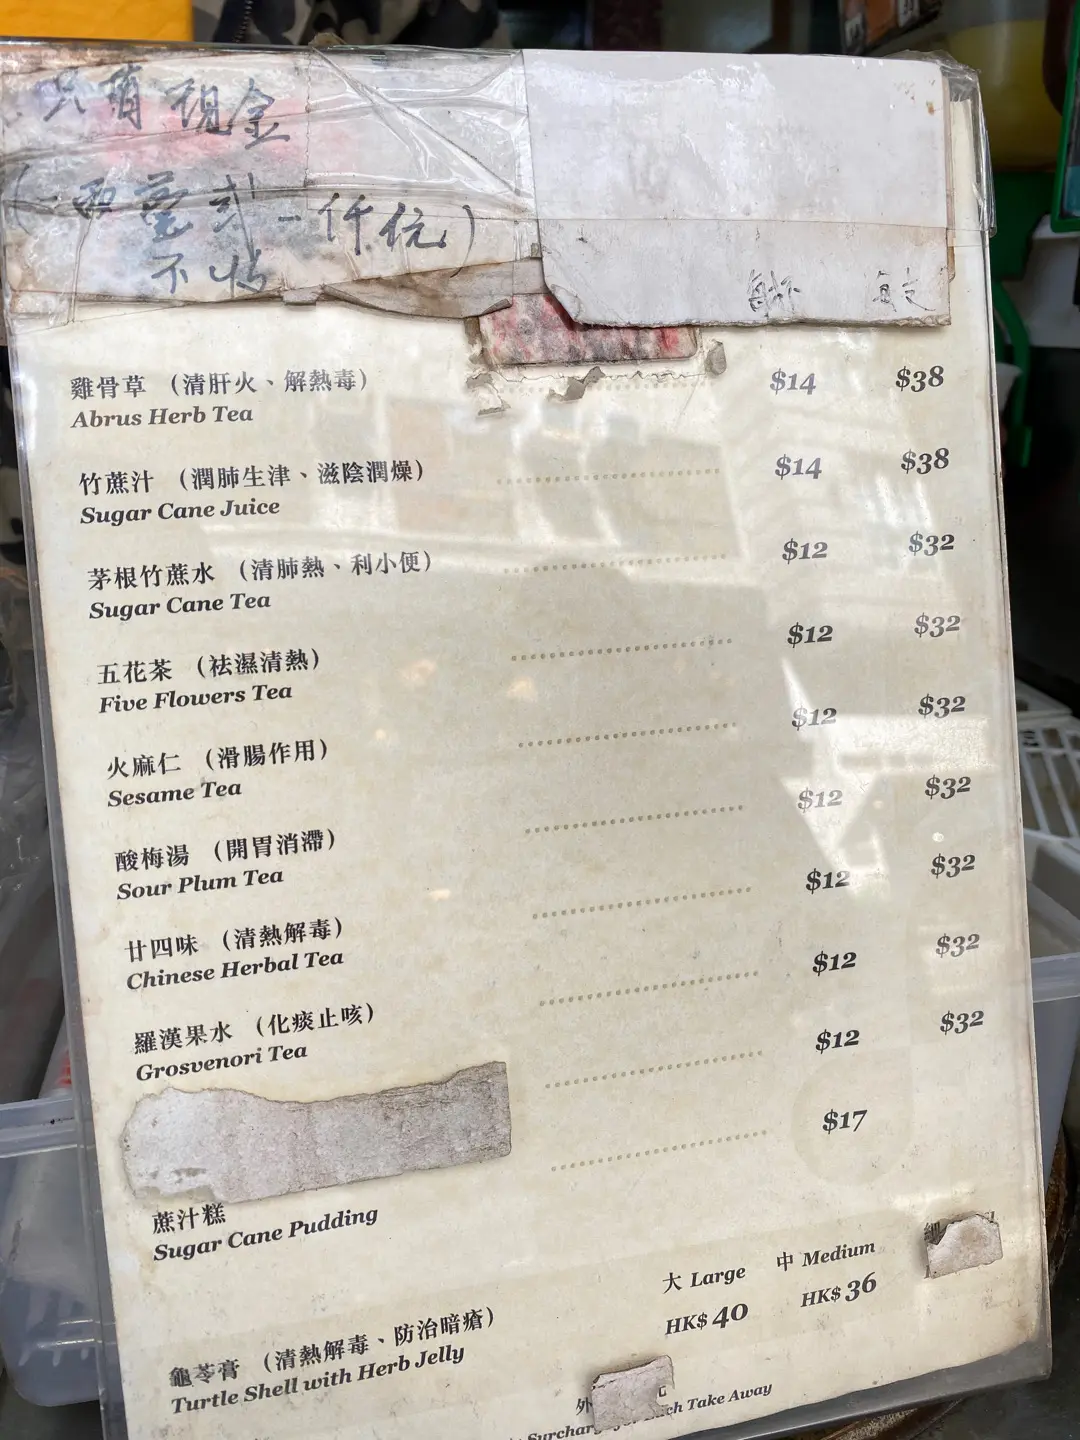 只有現金
(一両毫弍
一仟
不收
每杯 每支
雞骨草 （清肝火、解熱毒） $14 $38
Abrus Herb Tea
竹蔗汁 （潤肺生津、滋陰潤燥） $14 $38
Sugar Cane Juice
茅根竹蔗水 （清肺熱、利小便） $12 $32
Sugar Cane Tea
五花茶 （祛濕清熱） $12 $32
Five Flowers Tea
火麻仁 （滑腸作用） $12 $32
Sesame Tea
酸梅湯 （開胃消滯） $12 $32
Sour Plum Tea
廿四味 （清熱解毒） $12 $32
Chinese Herbal Tea
羅漢果水 （化痰止咳） $12 $32
Grosvenori Tea
$12 $32
蔗汁糕 $17
Sugar Cane Pudding
大 Large 中 Medium
HK$ 40 HK$ 36
龜苓膏 （清熱解毒、防治暗瘡）
Turtle Shell with Herb Jelly
外
Take Away